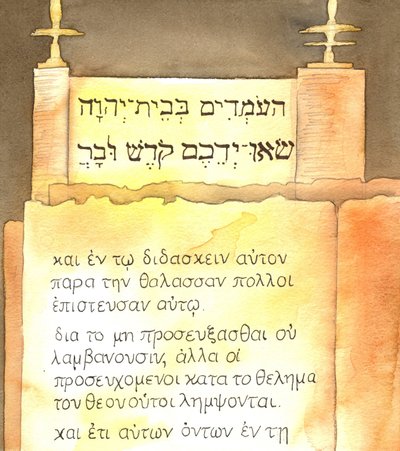 הָעֹמְדִים בְּבֵית־יְהוָה
שְׂאוּ־יְדֵכֶם קֹדֶשׁ וּבָרֲ
και ἐν τῳ διδασκειν αὐτον
παρα την θαλασσαν πολλοι
ἐπιστευσαν αὐτῳ.
δια το μη προσευξασθαι οὐ
λαμβανουσιν, ἀλλα οἱ
προσευχομενοι κατα το θελημα
του θεου οὑτοι λημψονται.
και ἐτι αὐτων ὀντων ἐν τῃ